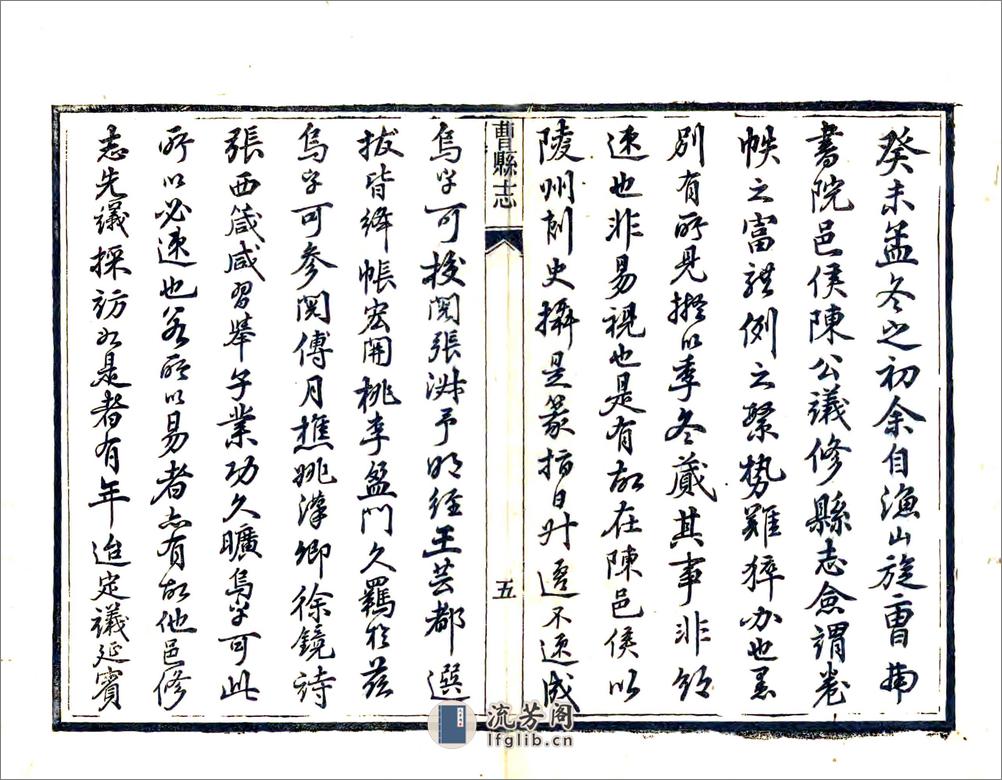 癸未孟冬之初余自漁山旋曹南
書院邑侯陳公議修縣志僉謂卷
帙之富體例之繁勢難猝办也
別有所見擬以季冬蕆其事非
速也非易視也是有故在陳邑侯以
陵州刺史攝是篆指日升遷不速成
烏乎可授
明經王芸都選
拔皆絳帳宏開桃李盈門久羈於茲
烏乎可參
傅月樵姚漢卿徐鏡詩
張西箴咸習舉子業功久曠烏乎可此
所以必速也若所以易者亦有故他邑修
志先議採訪如是者有年迨定議延賓
曹縣志
五
流芳阁
lfglib.cn